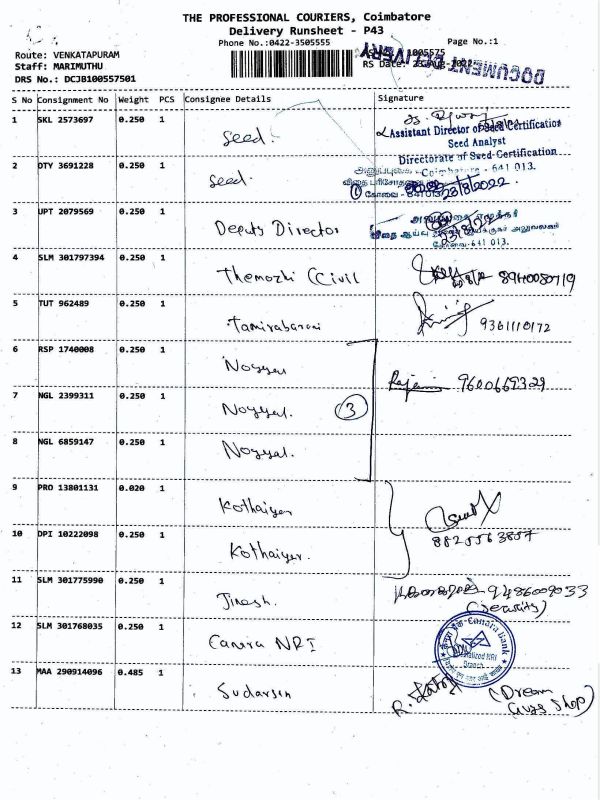 THE PROFESSIONAL COURIERS, Coimbatore
Delivery Runsheet - P43
Phone No.:0422-3505555
Page No.:1
Route: VENKATAPURAM
Staff: MARIMUTHU
DRS No.: DCJB100557501
DOCUMENT DELIVERY
S No Consignment No Weight PCS Consignee Details Signature
1 SKL 2573697 0.250 1 Seed.
Assistant Director of Seed Certification
Seed Analyst
Directorate of Seed-Certification
Coimbatore - 641 013.
2 DTY 3691228 0.250 1 Seed. 23/8/2022
3 UPT 2079569 0.250 1 Deputy Director
கோவை-641 013.
4 SLM 301797394 0.250 1 Themozhi (Civil 8940080719
5 TUT 962489 0.250 1 Tamirabarani 9361110172
6 RSP 1740008 0.250 1 Noyyal
7 NGL 2399311 0.250 1 Noyyal. 3 9600669329
8 NGL 6859147 0.250 1 Noyyal.
9 PRO 13801131 0.020 1 Kothaiyer
10 DPI 10222098 0.250 1 Kothaiyer. 8825563857
11 SLM 301775990 0.250 1 Jinesh. 9486009033
(Security)
12 SLM 301768035 0.250 1 Canara NRI
Canara Bank
NRI
Branch
13 MAA 290914096 0.485 1 Sudarsen
(Dream
Guys Shop)